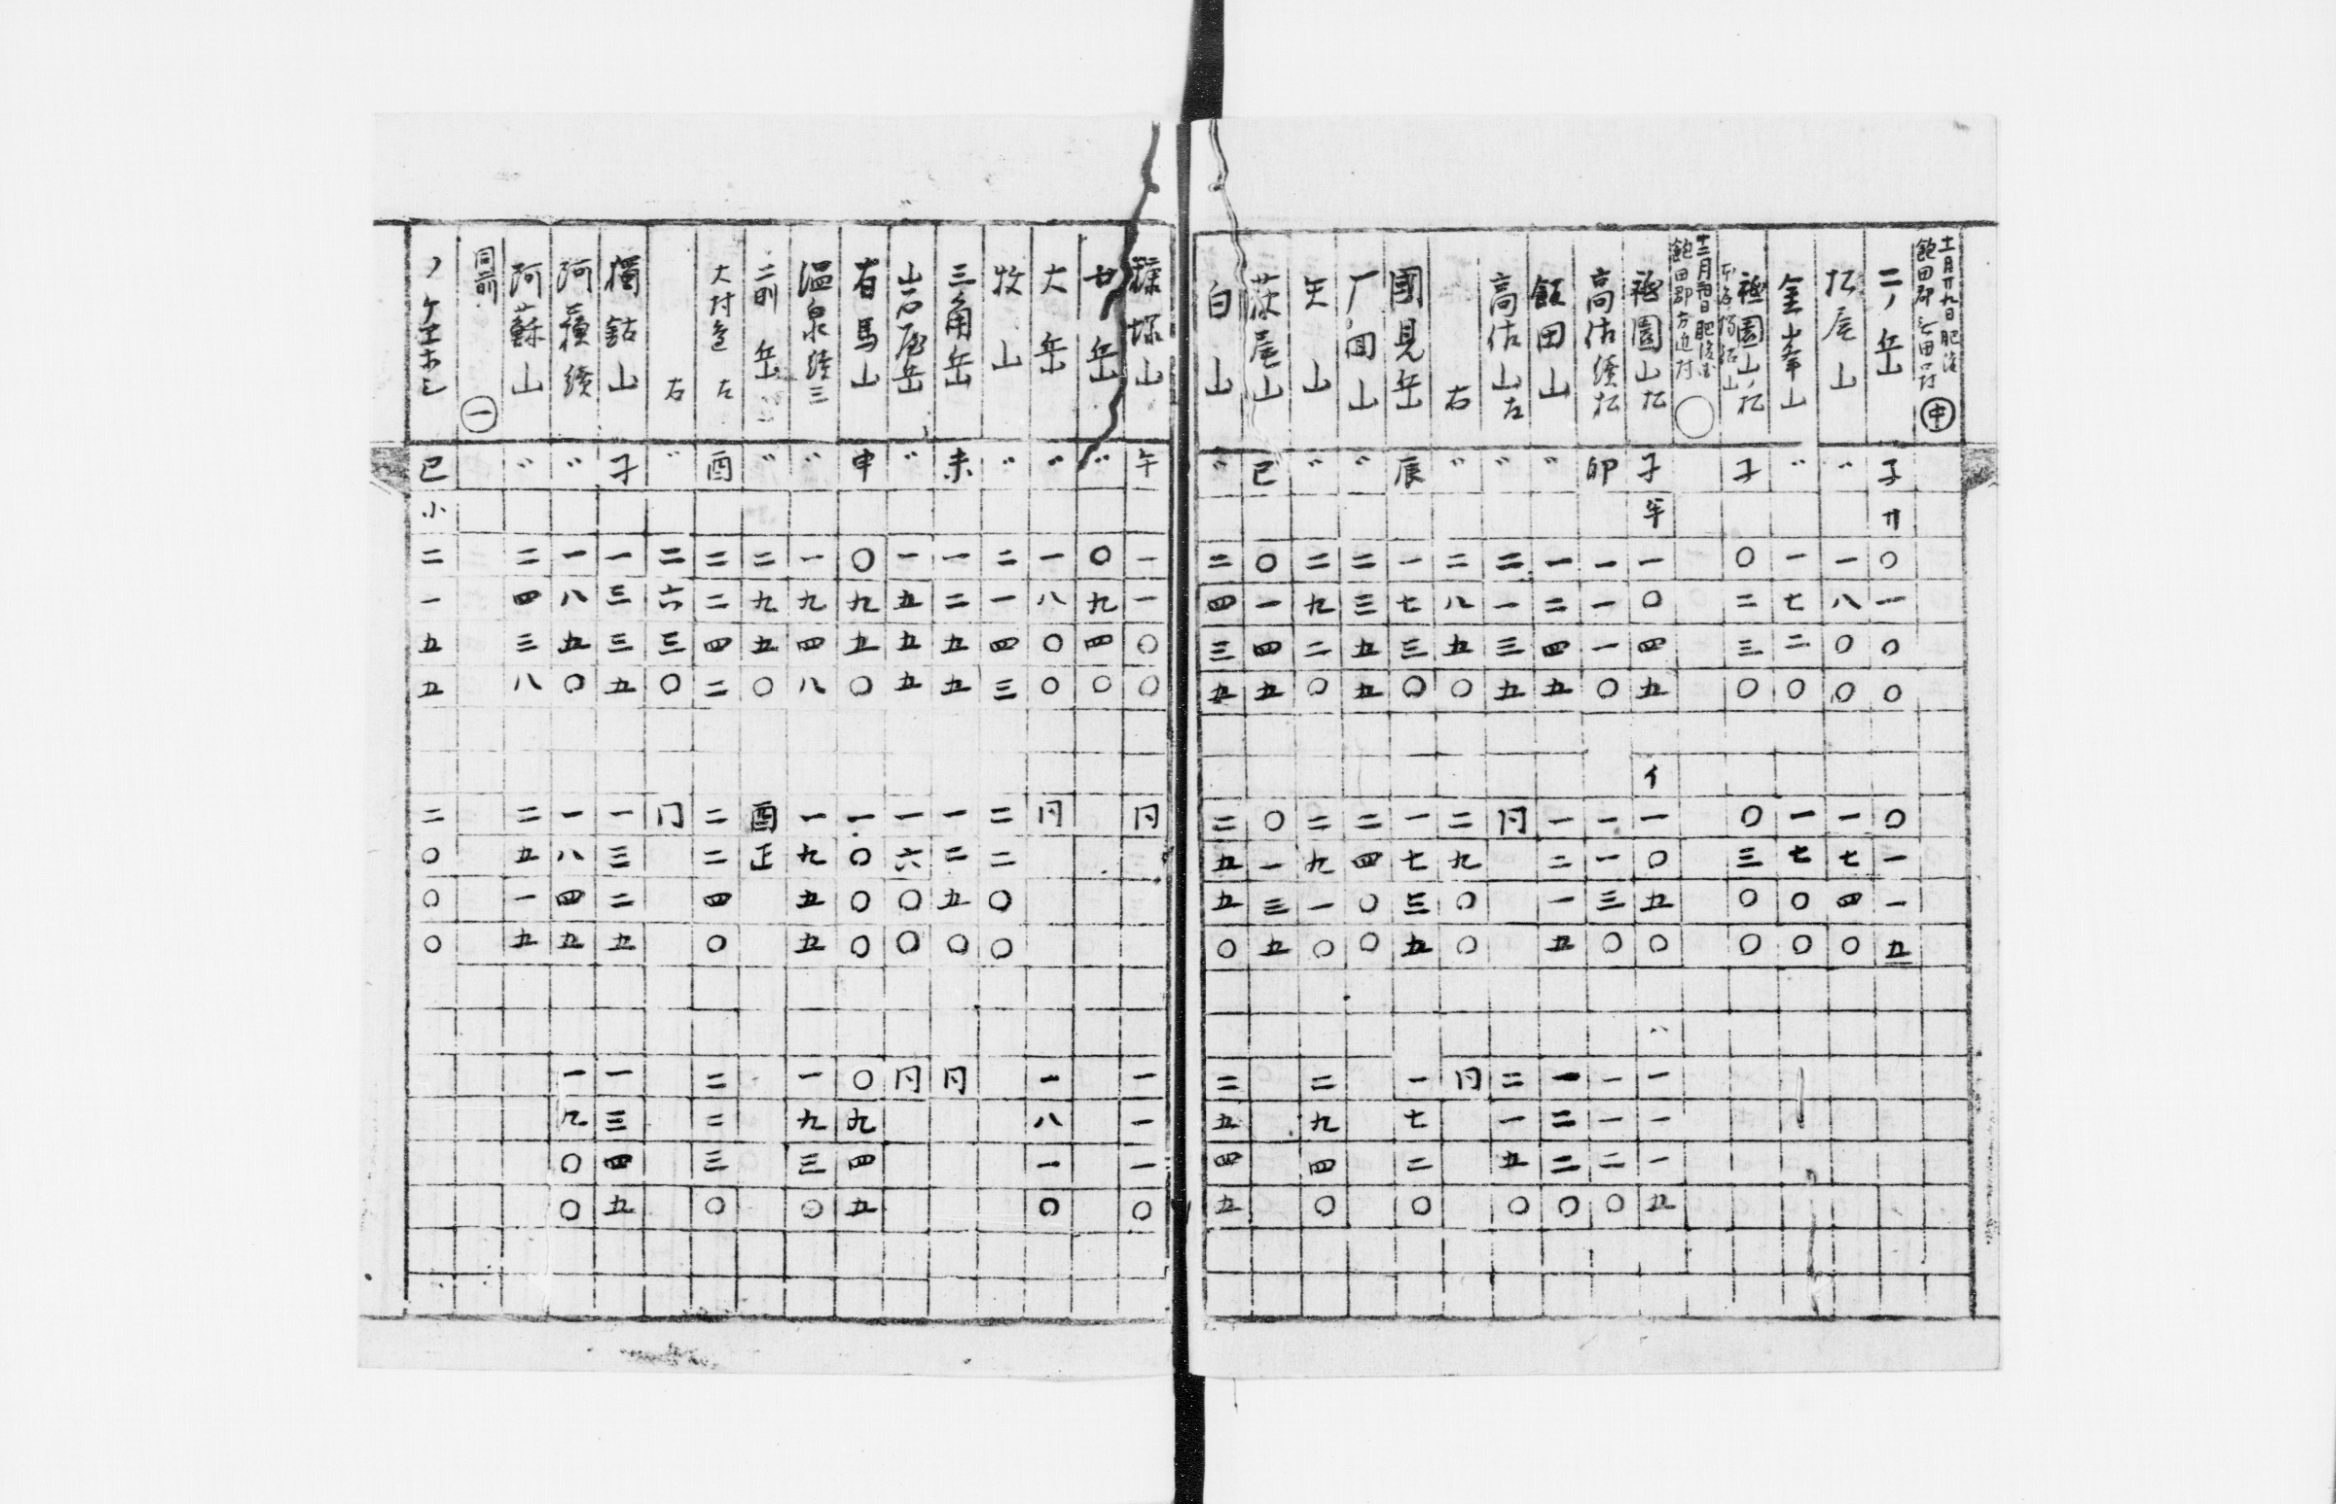 十一月廿九日 肥後 飽田郡 池田村 ㊥
二ノ岳 子 廿 〇一〇〇 〇一一五
松尾山 〃 一八〇〇 一七四〇
金峯山 〃 一七二〇 一七〇〇
祇園山ノ松 子 〇二三〇 〇三〇〇
飽田郡 方近村 〇
祇園山松 子 午 一〇四五 イ 一〇五〇 ハ 一一一五
高佐繞松 卯 一一一〇 一一三〇 一一二〇
飯田山 〃 一二四五 一二一五 一二二〇
高佐山左 〃 二一三五 同 二一五〇
右 〃 二八五〇 二九〇〇 同
國見岳 辰 一七三〇 一七三五 一七二〇
厂回山 〃 二三五五 二四〇〇
矢山 〃 二九二〇 二九一〇 二九四〇
萩尾山 巳 〇一四五 〇一三五
白山 〃 二四三五 二五五〇 二五四五
午 一一〇〇 同 一一一〇
廿岳 〃 〇九四〇
大岳 〃 一八〇〇 同 一八一〇
牧山 〃 二一四三 二二〇〇
三角岳 未 一二五五 一二五〇 同
山石屋岳 〃 一五五五 一六〇〇 同
有馬山 申 〇九五〇 一〇〇〇 〇九四五
温泉繞三 〃 一九四八 一九五五 一九三〇
二別岳 〃 二九五〇 酉正
大村遠 左 酉 二二四二 二二四〇 二二三〇
右 〃 二六三〇 同
獨詁山 子 一三三五 一三二五 一三四五
阿蘇繞 〃 一八五〇 一八四五 一九〇〇
阿蘇山 〃 二四三八 二五一五
同前 ㊀
巳 小 二一五五 二〇〇〇